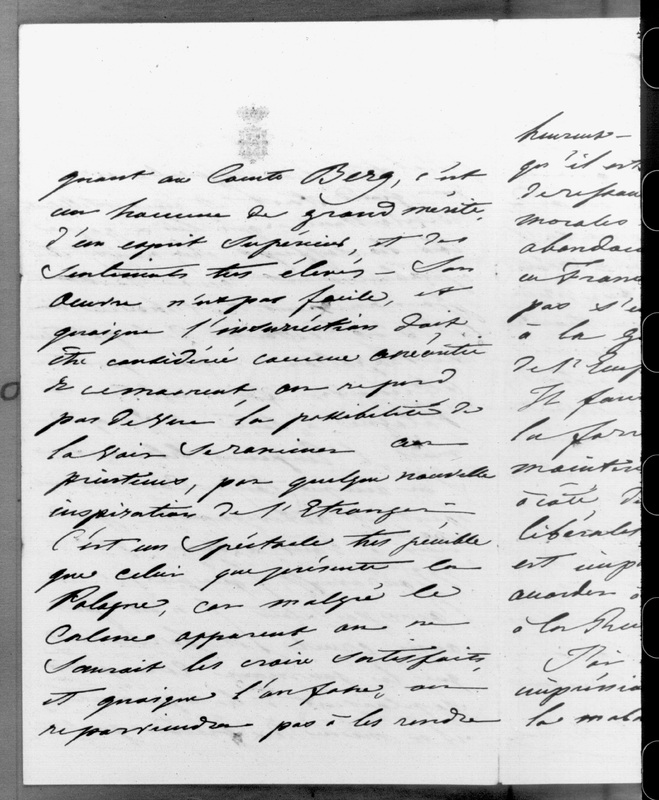 quant au Comte Berg, c'est
un homme de grand mérite,
d'un esprit supérieur, et des
sentiments très élevés – Son
Oeuvre n'est pas facile, et
quoique l'insurrection doit
être considérée comme anéantie
en ce moment on ne perd
pas de vue la possibilité de
la voir se ranimer au
printems, par quelque nouvelle
inspiration de l'Etranger –
C'est un spéctacle très pénible
que celui que présente la
Pologne, car malgré le
Calme apparent, on ne
saurait les croire satisfaits,
et quoique l'on fasse, on
ne parviendra pas à les rendre
heureux –
qu'il est
morales
en Fran
pas s'e
à la
de l'Emp
Il fau
la for
mainten
à côté d
libérales
est imp
accorder
à la Ru
J'ai
impressio
la mala